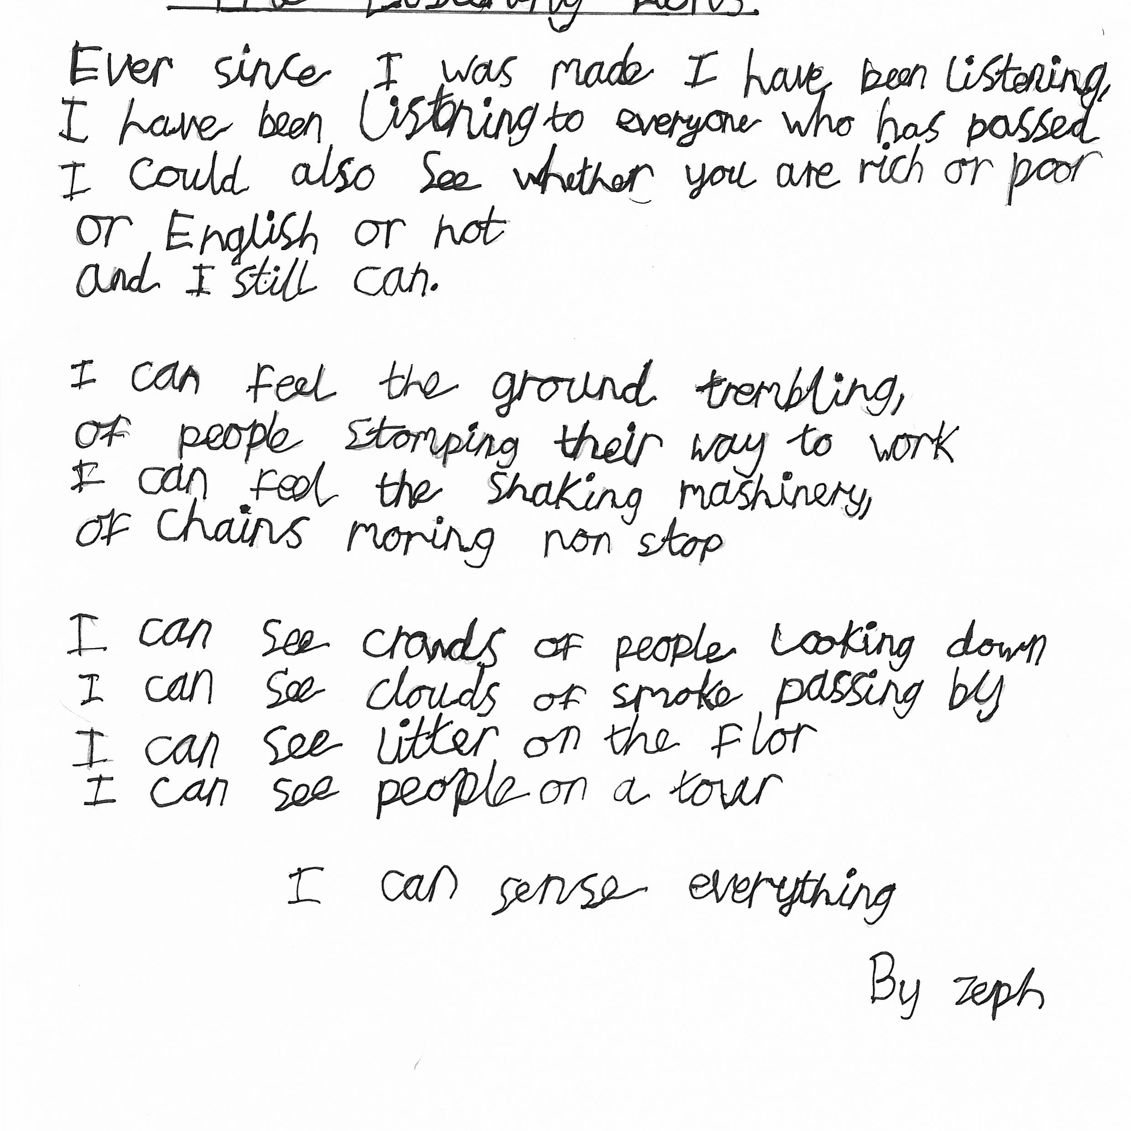 The Listening
Ever since I was made I have been listening,
I have been listening to everyone who has passed
I could also see whether you are rich or poor
or English or not
and I still can.
I can feel the ground trembling,
of people stomping their way to work
I can feel the shaking mashinery,
of chains moring non stop
I can see crowds of people looking down
I can see clouds of smoke passing by
I can see litter on the flor
I can see people on a tour
I can sense everything
By zeph